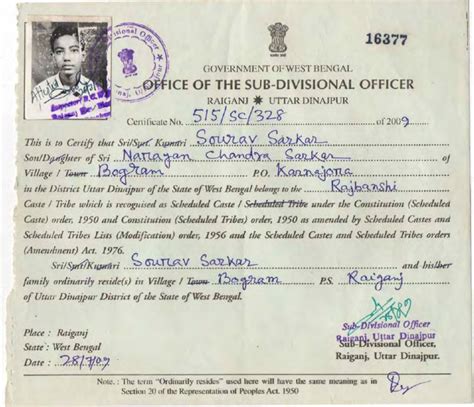 16377
GOVERNMENT OF WEST BENGAL
OFFICE OF THE SUB-DIVISIONAL OFFICER
RAIGANJ ✷ UTTAR DINAJPUR
Certificate No. 515/SC/328 of 2009
This is to Certify that Sri/Smt. Kumari Sourav Sarkar
Son/Daughter of Sri Narayan Chandra Sarkar of
Village / Town Bogram P.O. Karnajora
in the District Uttar Dinajpur of the State of West Bengal belong to the Rajbanshi
Caste / Tribe which is recognised as Scheduled Caste / Scheduled Tribe under the Constitution (Scheduled
Caste) order, 1950 and Constitution (Scheduled Tribes) order, 1950 as amended by Scheduled Castes and Scheduled
Tribes Lists (Modification) order, 1956 and the Scheduled Castes and Scheduled Tribes orders
(Amendment) Act. 1976.
Sri/Smt/Kumari Sourav Sarkar and his/her
family ordinarily reside(s) in Village / Town Bogram P.S. Raiganj
of Uttar Dinajpur District of the State of West Bengal.
Sub-Divisional Officer
Raiganj, Uttar Dinajpur
Place : Raiganj
SUB-DIVISIONAL OFFICER
State : West Bengal
Raiganj, Uttar Dinajpur.
Date : 28/7/09
Note. : The term "Ordinarily resides" used here will have the same meaning as in
Section 20 of the Representation of Peoples Act. 1950